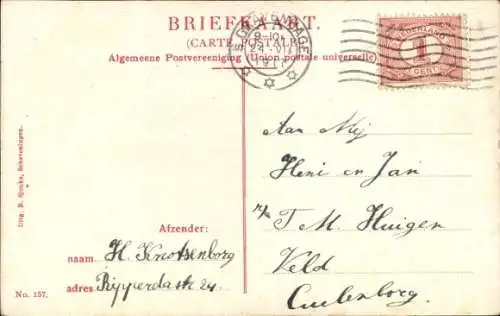 BRIEFKAART.
(CARTE POSTALE)
Algemeene Postvereeniging (Union postale universelle)
S GRAVENHAGE
NEDERLAND
1
CENT
Aan Mej
Heni en Jan
T. M. Huigen
Veld
Culenborg.
Uitg. B. Sjouke, Scheveningen.
Afzender:
naam H. Knotsenborg
adres Ripperdastr 24
No. 157.